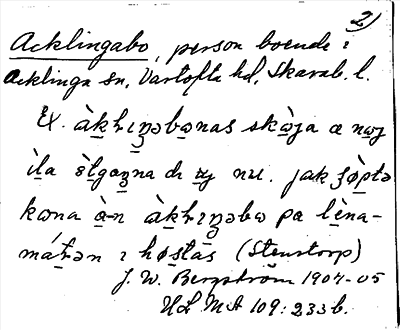 2)
Acklingabo, person boende i
Acklinga sn, Vartofta hd, Skarab. l.
Ex. àkƚıŋəbənas skàja æ nɯŋ
ı̀la ètgaʒna dı ɯŋ nu. jak ʒøptə
kɷna à-n àkƚıŋəbɷ pa lèna-
mátən ı høstàs (Stenstorp)
J. W. Bergström 1904-05
ULMA 109:233 b.